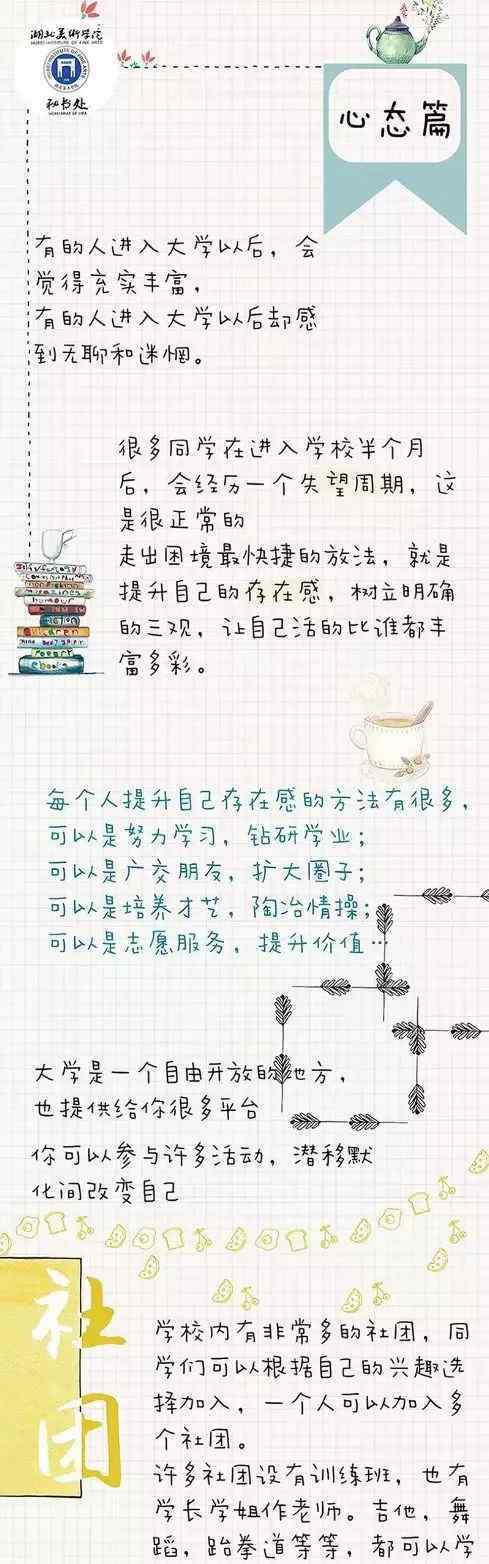 湖北美術学院
HUBEI INSTITUTE OF FINE ARTS
秘书处
心态篇
有的人进入大学以后，会
觉得充实丰富，
有的人进入大学以后却感
到无聊和迷惘。
很多同学在进入学校半个月
后，会经历一个失望周期，这
是很正常的
走出困境最快捷的放法，就是
提升自己的存在感，树立明确
的三观，让自己活的比谁都丰
富多彩。
humour
children
ebooks
每个人提升自己存在感的方法有很多，
可以是努力学习，钻研学业；
可以是广交朋友，扩大圈子；
可以是培养才艺，陶冶情操；
可以是志愿服务，提升价值…
大学是一个自由开放的地方，
也提供给你很多平台
你可以参与许多活动，潜移默
化间改变自己
社团
学校内有非常多的社团，同
学们可以根据自己的兴趣选
择加入，一个人可以加入多
个社团。
许多社团设有训练班，也有
学长学姐作老师。吉他，舞
蹈，跆拳道等等，都可以学